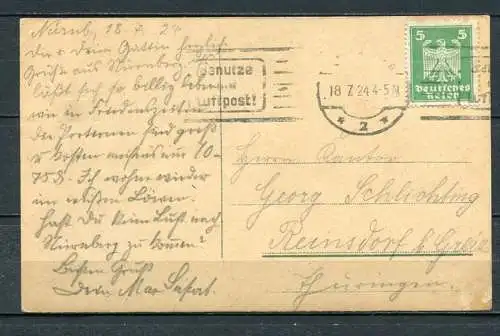 Nürnb, 18.7.24
Dir & Deiner Gattin herzlich
Grüße aus Nürnberg.
läßt sich so billig leben
wie in Friedenszeiten
die Portionen sind groß
u. kosten
75 S. Ich wohne wieder
im weißen Löwen.
Hast Du keine Lust nach
Nürnberg zu kommen?
Besten Gruß
Dein Max
Benutze
Luftpost!
18 7. 24 4-5 N
* 2 *
5 5
Deutsches
Reich
Herrn Kantor
Georg Schlichting
Reinsdorf b. Greiz
Thüringen.